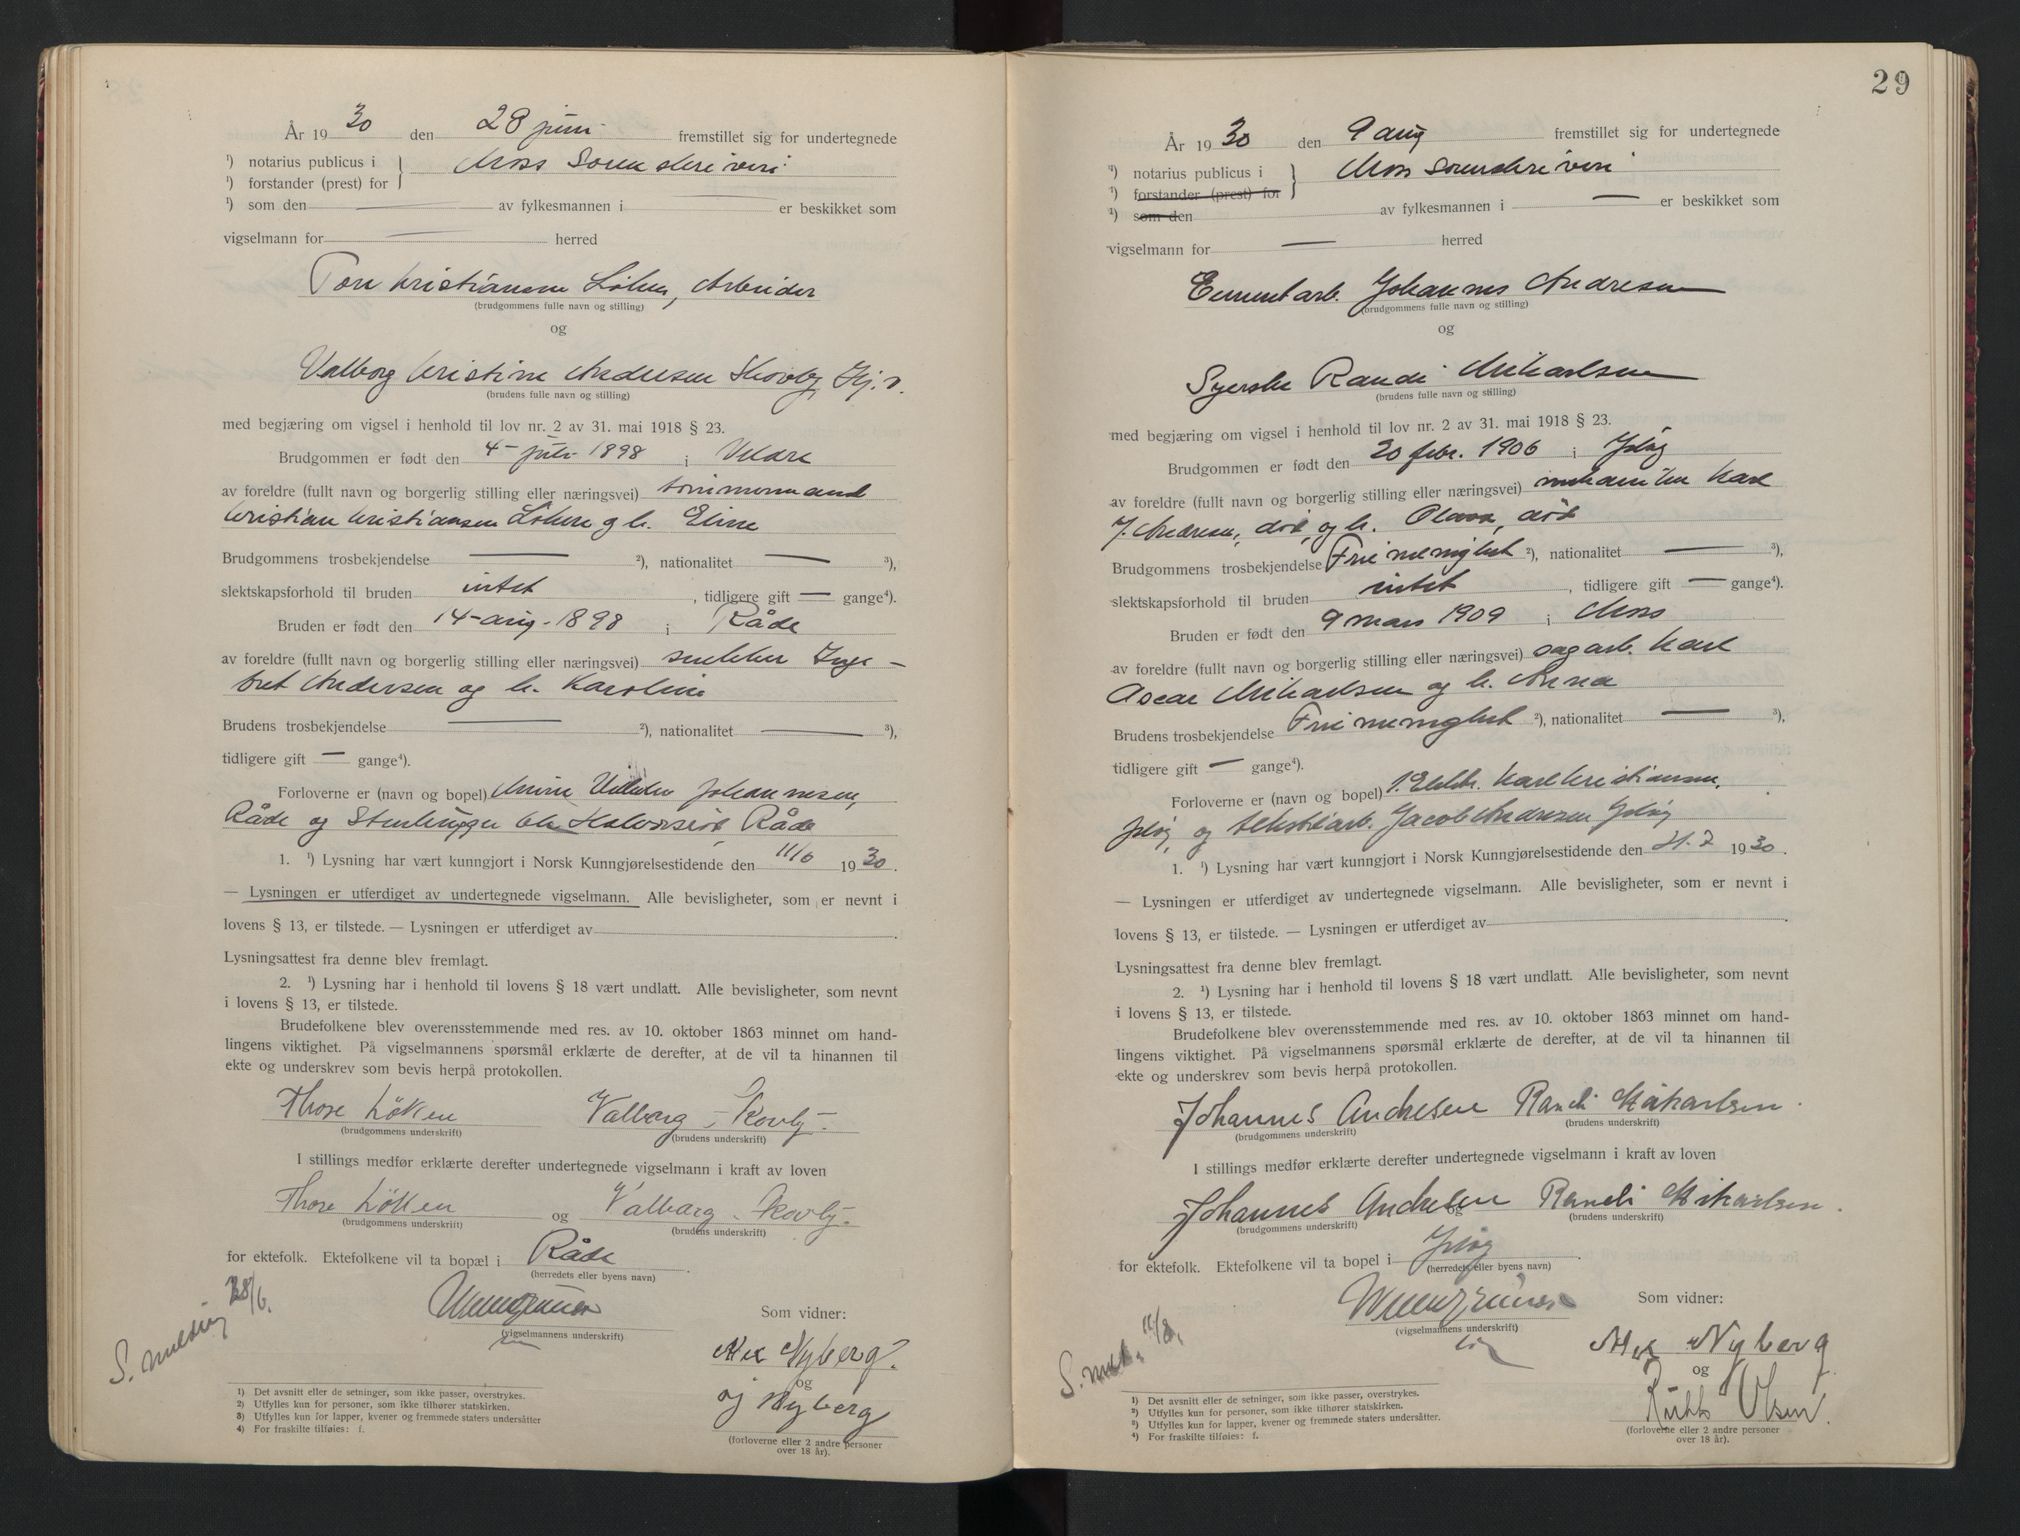 År 19 30 den 28 juni fremstillet sig for undertegnede
¹) notarius publicus i } Moss Sorenskriveri
¹) forstander (prest) for
¹) som den — av fylkesmannen i — er beskikket som
vigselmann for — herred
Tore Kristiansen Löken, Arbeider
(brudgommens fulle navn og stilling)
og
Valborg Kristine Andersen Skovby Hj.v.
(brudens fulle navn og stilling)
med begjæring om vigsel i henhold til lov nr. 2 av 31. mai 1918 § 23.
Brudgommen er født den 4 juli 1898 i Veldre
av foreldre (fullt navn og borgerlig stilling eller næringsvei) tömmermand
Kristian Kristiansen Löken og h. Eline
Brudgommens trosbekjendelse — ²), nationalitet — ³),
slektskapsforhold til bruden intet, tidligere gift — gange⁴).
Bruden er født den 14 aug. 1898 i Råde
av foreldre (fullt navn og borgerlig stilling eller næringsvei) snekker Inge-
bret Andersen og h. Karoline
Brudens trosbekjendelse — ²), nationalitet — ³),
tidligere gift — gange⁴).
Forloverne er (navn og bopel) Johannesen,
Råde og Råde
1. ¹) Lysning har vært kunngjort i Norsk Kunngjørelsestidende den 11/6 1930.
— Lysningen er utferdiget av undertegnede vigselmann. Alle bevisligheter, som er nevnt i
lovens § 13, er tilstede. — Lysningen er utferdiget av
Lysningsattest fra denne blev fremlagt.
2. ¹) Lysning har i henhold til lovens § 18 vært undlatt. Alle bevisligheter, som nevnt
i lovens § 13, er tilstede.
Brudefolkene blev overensstemmende med res. av 10. oktober 1863 minnet om hand-
lingens viktighet. På vigselmannens spørsmål erklærte de derefter, at de vil ta hinannen til
ekte og underskrev som bevis herpå protokollen.
Thore Løken Valborg Skovby.
(brudgommens underskrift) (brudens underskrift)
I stillings medfør erklærte derefter undertegnede vigselmann i kraft av loven
Thore Løken og Valborg Skovby.
(brudgommens underskrift) (brudens underskrift)
for ektefolk. Ektefolkene vil ta bopæl i Råde.
(herredets eller byens navn)
S. melding 28/6.
(vigselmannens underskrift)
Som vidner:
Alex Nyberg.
og
Nyberg
(forloverne eller 2 andre personer
over 18 år).
1) Det avsnitt eller de setninger, som ikke passer, overstrykes.
2) Utfylles kun for personer, som ikke tilhører statskirken.
3) Utfylles kun for lapper, kvener og fremmede staters undersåtter
4) For fraskilte tilføies: f.
29
År 1930 den 9 aug fremstillet sig for undertegnede
¹) notarius publicus i } Moss sorenskriveri
¹) forstander (prest) for
¹) som den av fylkesmannen i — er beskikket som
vigselmann for — herred
Johannes Andresen
(brudgommens fulle navn og stilling)
og
Syerske Randi Mikarlsen
(brudens fulle navn og stilling)
med begjæring om vigsel i henhold til lov nr. 2 av 31. mai 1918 § 23.
Brudgommen er født den 20 febr. 1906 i Jeløy
av foreldre (fullt navn og borgerlig stilling eller næringsvei) mekaniker Karl
J. Andresen, død, og h. død
Brudgommens trosbekjendelse Frimenighet ²), nationalitet — ³),
slektskapsforhold til bruden intet, tidligere gift — gange⁴).
Bruden er født den 9 mars 1909 i Moss
av foreldre (fullt navn og borgerlig stilling eller næringsvei) sagarb. Karl
Oscar Mikarlsen og h. Anna
Brudens trosbekjendelse Frimenighet ²), nationalitet — ³),
tidligere gift — gange⁴).
Forloverne er (navn og bopel) Karl Kristiansen,
Jeløy, og Jacob Andresen Jeløy
1. ¹) Lysning har vært kunngjort i Norsk Kunngjørelsestidende den 21.7 1930.
— Lysningen er utferdiget av undertegnede vigselmann. Alle bevisligheter, som er nevnt i
lovens § 13, er tilstede. — Lysningen er utferdiget av
Lysningsattest fra denne blev fremlagt.
2. ¹) Lysning har i henhold til lovens § 18 vært undlatt. Alle bevisligheter, som nevnt
i lovens § 13, er tilstede.
Brudefolkene blev overensstemmende med res. av 10. oktober 1863 minnet om hand-
lingens viktighet. På vigselmannens spørsmål erklærte de derefter, at de vil ta hinannen til
ekte og underskrev som bevis herpå protokollen.
Johannes Andresen Randi Mikarlsen.
(brudgommens underskrift) (brudens underskrift)
I stillings medfør erklærte derefter undertegnede vigselmann i kraft av loven
Johannes Andresen og Randi Mikarlsen.
(brudgommens underskrift) (brudens underskrift)
for ektefolk. Ektefolkene vil ta bopel i Jeløy.
(herredets eller byens navn)
S. meld. 11/8.
(vigselmannens underskrift)
Som vidner:
Alex Nyberg
og
Olsen.
(forloverne eller 2 andre personer
over 18 år).
1) Det avsnitt eller de setninger, som ikke passer, overstrykes.
2) Utfylles kun for personer, som ikke tilhører statskirken.
3) Utfylles kun for lapper, kvener og fremmede staters undersåtter.
4) For fraskilte tilføies: f.